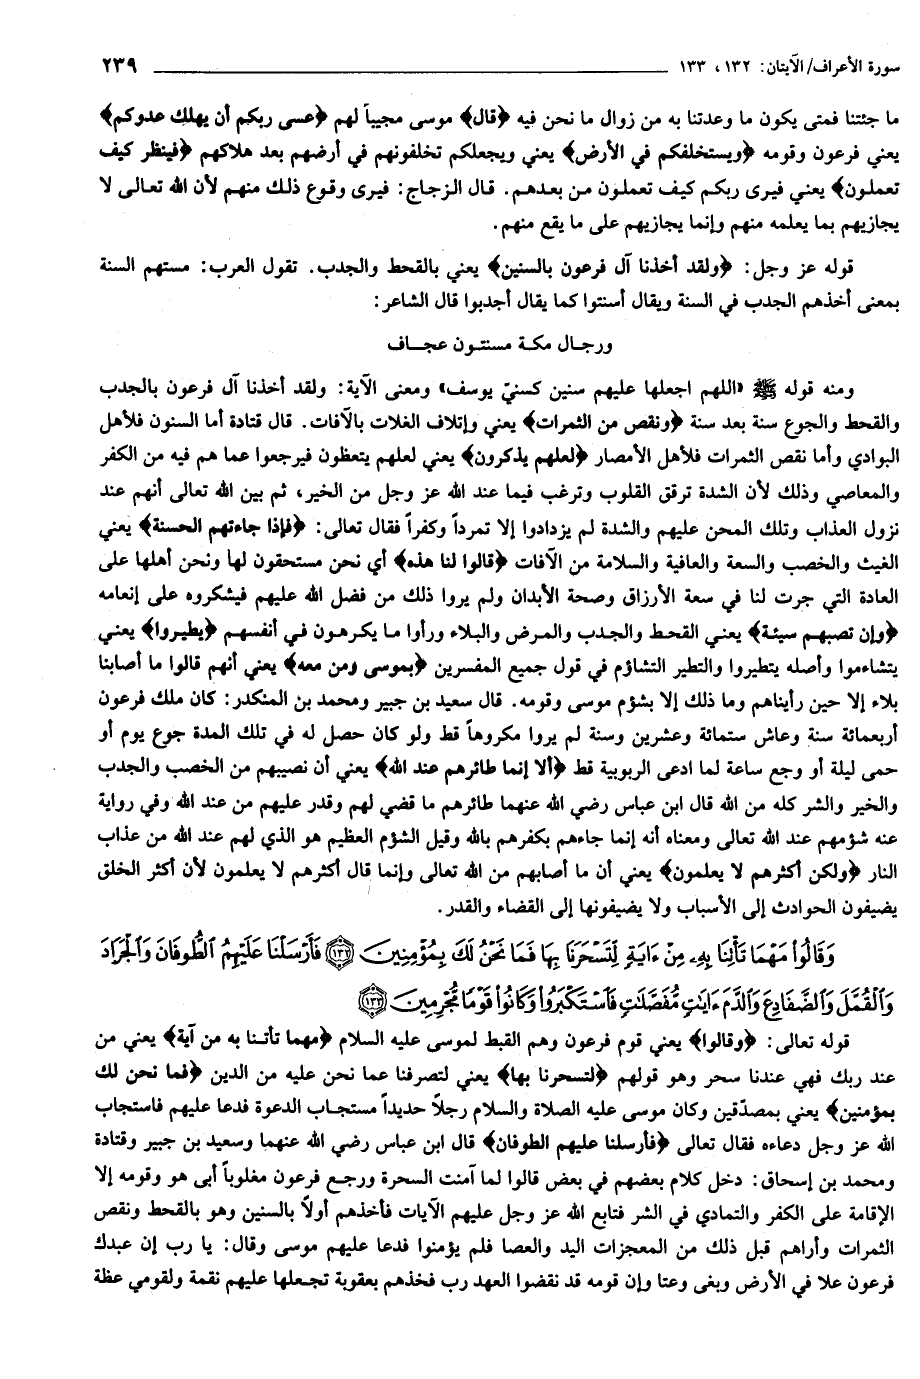 سورة الأعراف/الآيتان: ١٣٢ ، ١٣٣ ٢٣٩
ما جئتنا فمتى يكون ما وعدتنا به من زوال ما نحن فيه ﴿قال﴾ موسى مجيباً لهم ﴿عسى ربكم أن يهلك عدوكم﴾
يعني فرعون وقومه ﴿ويستخلفكم في الأرض﴾ يعني ويجعلكم تخلفونهم في أرضهم بعد هلاكهم ﴿فينظر كيف
تعملون﴾ يعني فيرى ربكم كيف تعملون من بعدهم. قال الزجاج: فيرى وقوع ذلك منهم لأن الله تعالى لا
يجازيهم بما يعلمه منهم وإنما يجازيهم على ما يقع منهم.
قوله عز وجل: ﴿ولقد أخذنا آل فرعون بالسنين﴾ يعني بالقحط والجدب. تقول العرب: مستهم السنة
بمعنى أخذهم الجدب في السنة ويقال أسنتوا كما يقال أجدبوا قال الشاعر:
ورجال مكة مسنتون عجاف
ومنه قوله ﷺ «اللهم اجعلها عليهم سنين كسنيّ يوسف» ومعنى الآية: ولقد أخذنا آل فرعون بالجدب
والقحط والجوع سنة بعد سنة ﴿ونقص من الثمرات﴾ يعني وإتلاف الغلات بالآفات. قال قتادة أما السنون فلأهل
البوادي وأما نقص الثمرات فلأهل الأمصار ﴿لعلهم يذكرون﴾ يعني لعلهم يتعظون فيرجعوا عما هم فيه من الكفر
والمعاصي وذلك لأن الشدة ترقق القلوب وترغب فيما عند الله عز وجل من الخير، ثم بين الله تعالى أنهم عند
نزول العذاب وتلك المحن عليهم والشدة لم يزدادوا إلا تمرداً وكفراً فقال تعالى: ﴿فإذا جاءتهم الحسنة﴾ يعني
الغيث والخصب والسعة والعافية والسلامة من الآفات ﴿قالوا لنا هذه﴾ أي نحن مستحقون لها ونحن أهلها على
العادة التي جرت لنا في سعة الأرزاق وصحة الأبدان ولم يروا ذلك من فضل الله عليهم فيشكروه على إنعامه
﴿وإن تصبهم سيئة﴾ يعني القحط والجدب والمرض والبلاء ورأوا ما يكرهون في أنفسهم ﴿يطيروا﴾ يعني
يتشاءموا وأصله يتطيروا والتطير التشاؤم في قول جميع المفسرين ﴿بموسى ومن معه﴾ يعني أنهم قالوا ما أصابنا
بلاء إلا حين رأيناهم وما ذلك إلا بشؤم موسى وقومه. قال سعيد بن جبير ومحمد بن المنكدر: كان ملك فرعون
أربعمائة سنة وعاش ستمائة وعشرين وسنة لم يروا مكروهاً قط ولو كان حصل له في تلك المدة جوع يوم أو
حمى ليلة أو وجع ساعة لما ادعى الربوبية قط ﴿ألا إنما طائرهم عند الله﴾ يعني أن نصيبهم من الخصب والجدب
والخير والشر كله من الله قال ابن عباس رضي الله عنهما طائرهم ما قضي لهم وقدر عليهم من عند الله وفي رواية
عنه شؤمهم عند الله تعالى ومعناه أنه إنما جاءهم بكفرهم بالله وقيل الشؤم العظيم هو الذي لهم عند الله من عذاب
النار ﴿ولكن أكثرهم لا يعلمون﴾ يعني أن ما أصابهم من الله تعالى وإنما قال أكثرهم لا يعلمون لأن أكثر الخلق
يضيفون الحوادث إلى الأسباب ولا يضيفونها إلى القضاء والقدر.
وَقَالُوا مَهْمَا تَأْتِنَا بِهِ مِنْ ءَايَةٍ لِتَسْحَرَنَا بِهَا فَمَا نَحْنُ لَكَ بِمُؤْمِنِينَ ﴿١٣٢﴾ فَأَرْسَلْنَا عَلَيْهِمُ الطُّوفَانَ وَالْجَرَادَ
وَالْقُمَّلَ وَالضَّفَادِعَ وَالدَّمَ ءَايَاتٍ مُفَصَّلَاتٍ فَاسْتَكْبَرُوا وَكَانُوا قَوْمًا مُجْرِمِينَ ﴿١٣٣﴾
قوله تعالى: ﴿وقالوا﴾ يعني قوم فرعون وهم القبط لموسى عليه السلام ﴿مهما تأتنا به من آية﴾ يعني من
عند ربك فهي عندنا سحر وهو قولهم ﴿لتسحرنا بها﴾ يعني لتصرفنا عما نحن عليه من الدين ﴿فما نحن لك
بمؤمنين﴾ يعني بمصدّقين وكان موسى عليه الصلاة والسلام رجلاً حديداً مستجاب الدعوة فدعا عليهم فاستجاب
الله عز وجل دعاءه فقال تعالى ﴿فأرسلنا عليهم الطوفان﴾ قال ابن عباس رضي الله عنهما وسعيد بن جبير وقتادة
ومحمد بن إسحاق: دخل كلام بعضهم في بعض قالوا لما آمنت السحرة ورجع فرعون مغلوباً أبى هو وقومه إلا
الإقامة على الكفر والتمادي في الشر فتابع الله عز وجل عليهم الآيات فأخذهم أولاً بالسنين وهو بالقحط ونقص
الثمرات وأراهم قبل ذلك من المعجزات اليد والعصا فلم يؤمنوا فدعا عليهم موسى وقال: يا رب إن عبدك
فرعون علا في الأرض وبغى وعتا وإن قومه قد نقضوا العهد رب فخذهم بعقوبة تجعلها عليهم نقمة ولقومي عظة